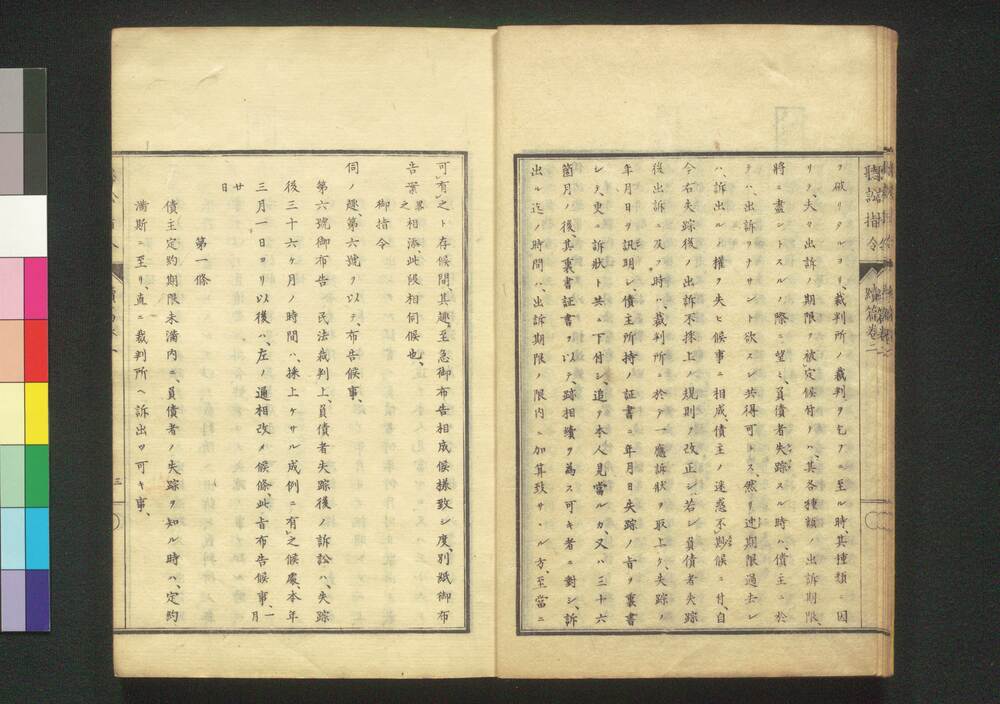 聽訟指令
蹤篇卷二
ヲ破リタルヨリ、裁判所ノ裁判ヲ乞フニ至ル時、其種類ニ因
リテ、夫々出訴ノ期限ヲ被定候付テハ、其各種類ノ出訴期限、
將ニ盡ントスルノ際ニ望ミ、負債者失踪スル時ハ、債主ニ於
テハ、出訴ヲナサント欲スレ共得可ラス、然リ迚期限過去レ
ハ、訴出ルノ權ヲ失ヒ候事ニ相成、債主ノ迷惑不尠候ニ付、自
今右失踪後ノ出訴不採上ノ規則ヲ改正シ、若シ負債者失踪
後出訴ニ及フ時ハ、裁判所ニ於テ一應訴狀ヲ取上ケ、失踪ノ
年月日ヲ訊明シ、債主所持ノ証書ニ年月日失踪ノ旨ヲ裏書
シテ、更ニ訴狀ト共ニ下付シ、追テ本人見當ルカ、又ハ三十六
箇月ノ後、其裏書証書ヲ以テ、跡相續ヲ為ス可キ者ニ對シ、訴
出ル迄ノ時間ハ、出訴期限ノ限内ニ加算致サヽル方、至當ニ
可有之ト存候間、其趣、至急御布告相成候様致シ度、別紙御布
告案畧之相添此段相伺候也、
御指令
伺ノ趣、第六號ヲ以テ、布告候事、
第六號御布告 民法裁判上、負債者失踪後ノ訴訟ハ、失踪
後三十六ケ月ノ時間ハ、採上ケサル成例ニ有之候處、本年
三月一日ヨリ以後ハ、左ノ通相改メ候條、此旨布告候事、一月
廿日
第一條
債主定約期限未滿内ニ、負債者ノ失踪ヲ知ル時ハ、定約
滿期ニ至リ、直ニ裁判所ヘ訴出ツ可キ事、
三